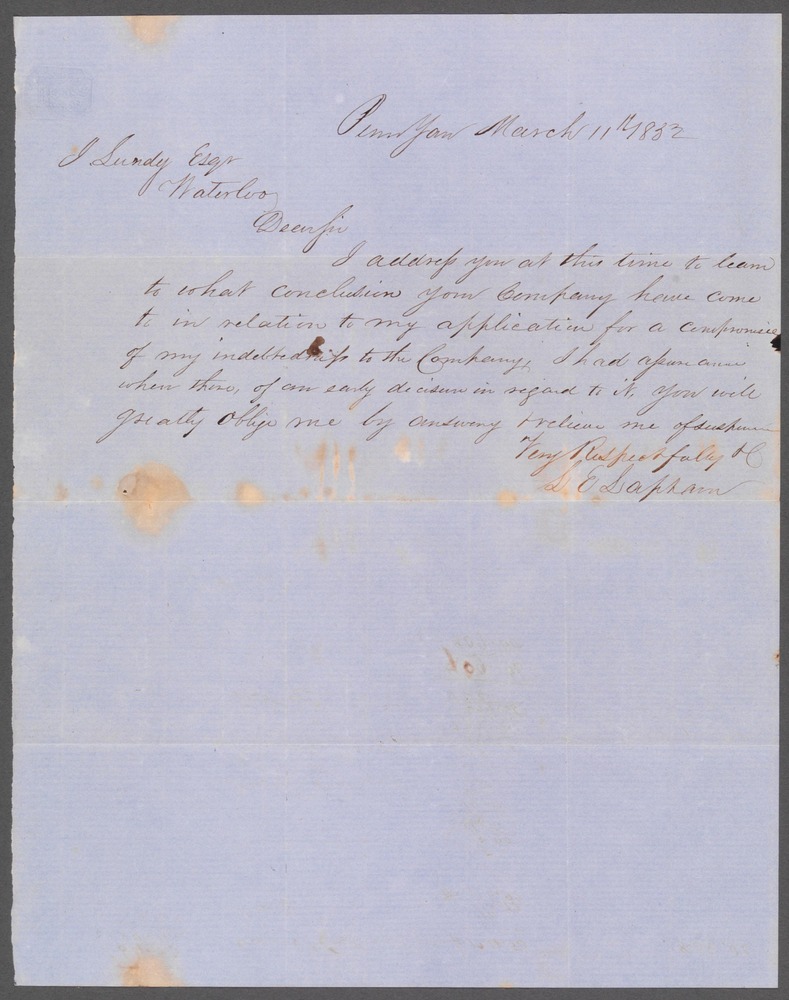 Penn Yan March 11th 1852
J Lundy Esqr
Waterloo
Dear Sir
I address you at this time to learn
to what conclusion your Company have come
to in relation to my application for a compromise
of my indebtedness to the Company, I had assurance
when there, of an early decision in regard to it, you will
greatly oblige me by answering & relieve me of suspense
Very Respectfully &C
L E Lapham